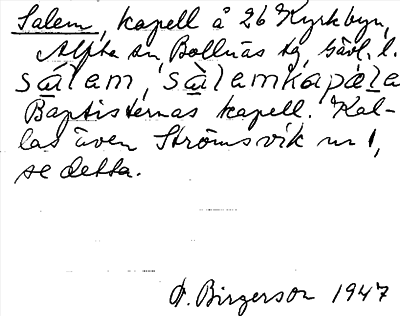 Salem, kapell å 26 Kyrkbyn,
Alfta sn, Bollnäs tg, Gävl. l.
sálam, sàlamkapäla
Baptisternas kapell. Kal-
las även Strömsvik nr 1,
se detta.
F. Birgerson 1947